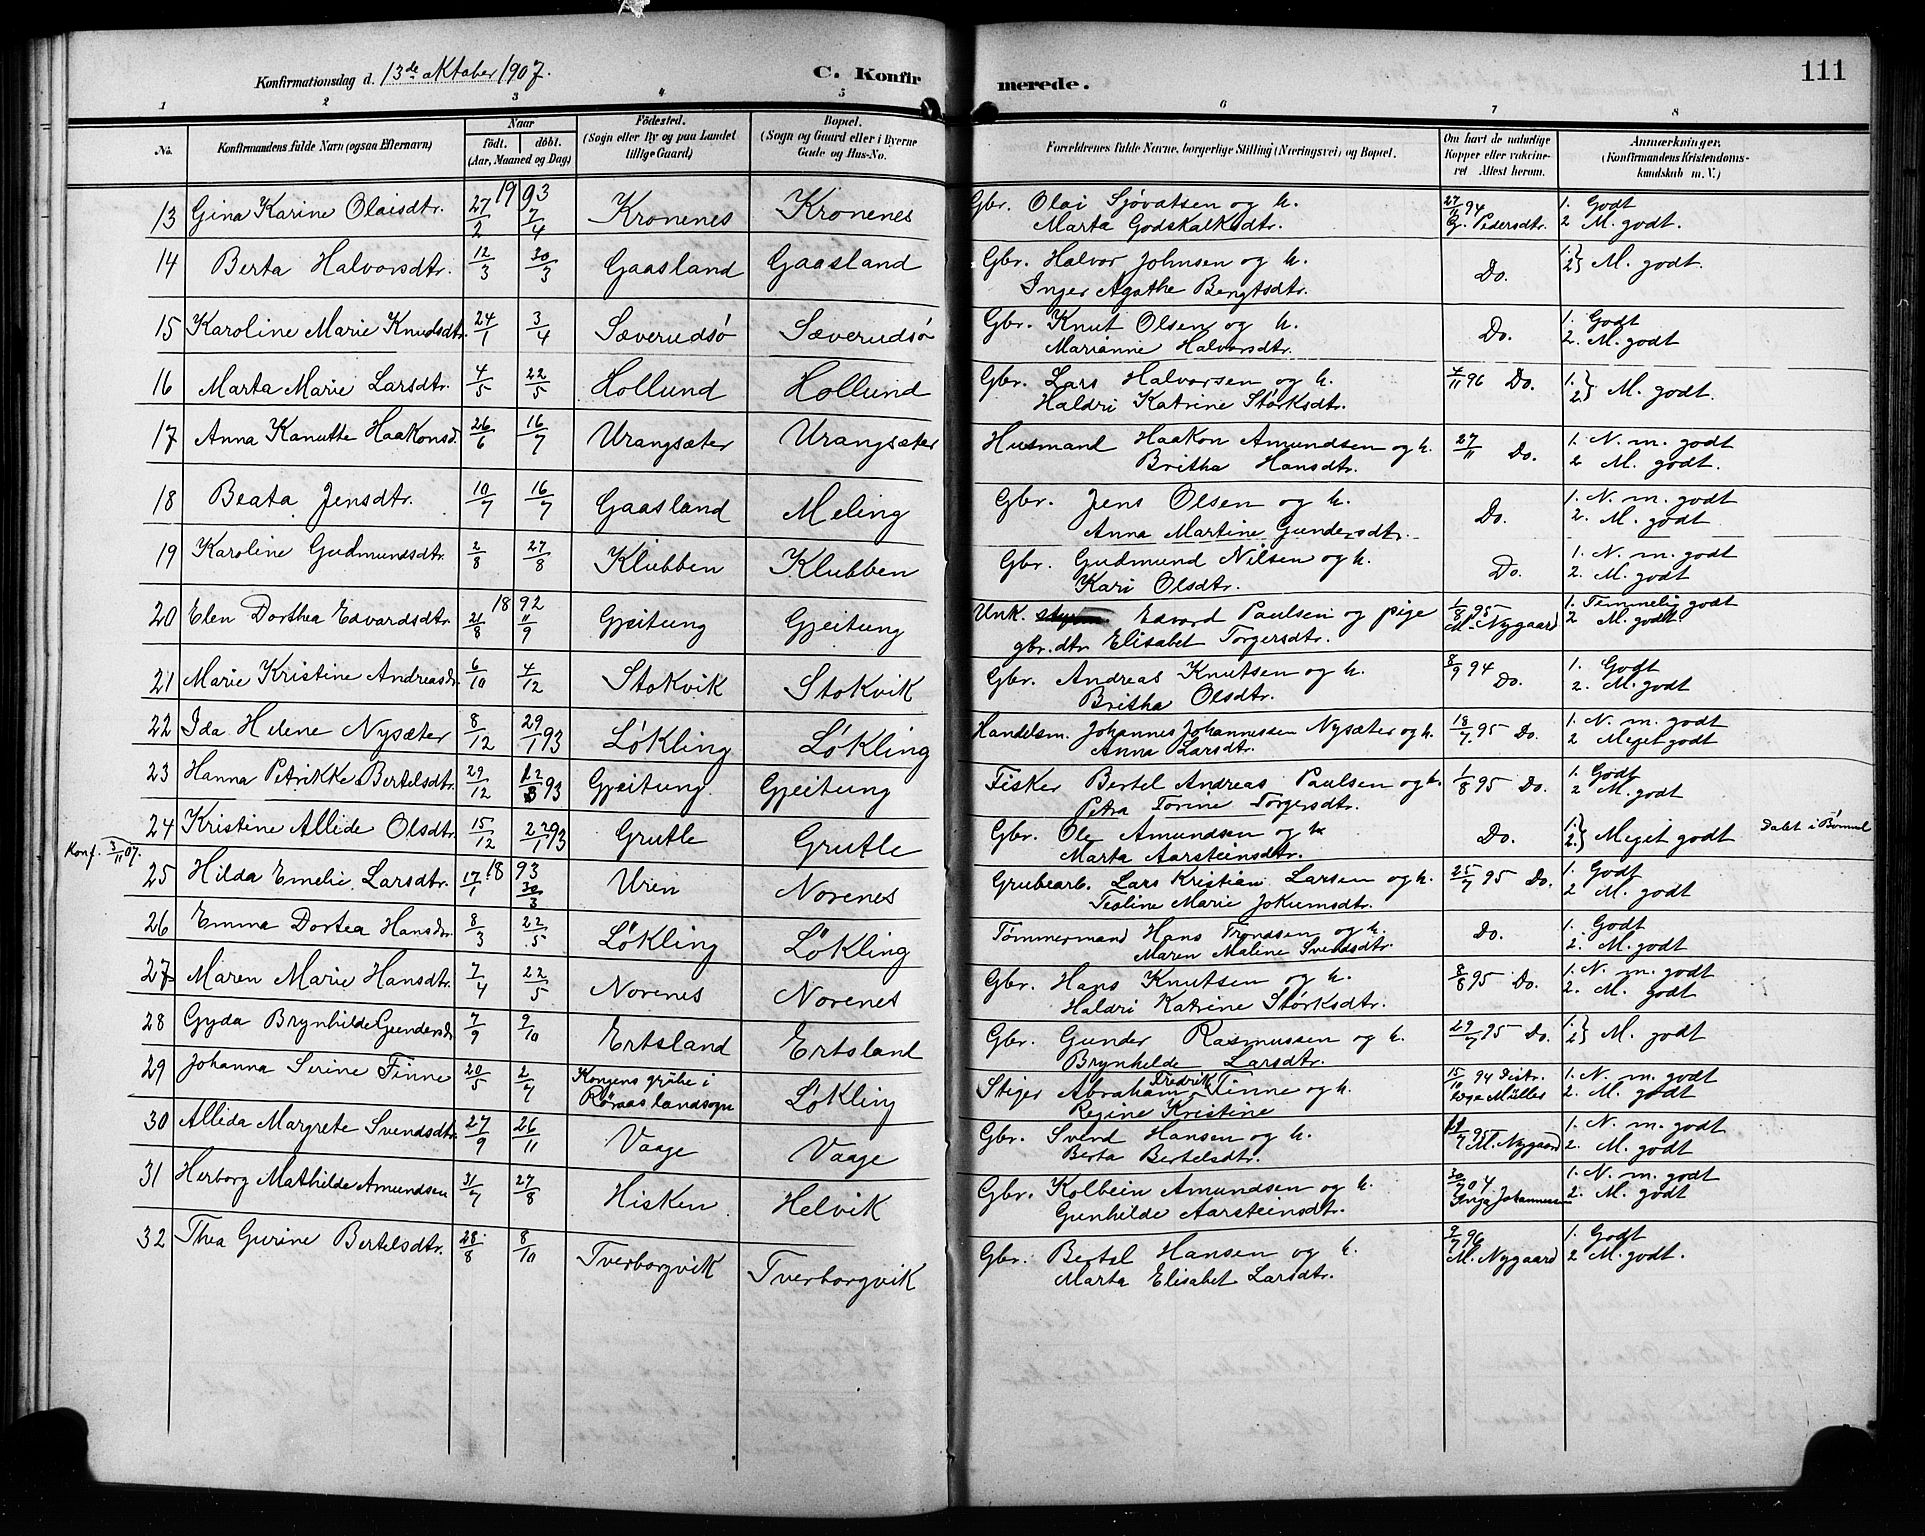 111
Konfirmationsdag d. 13de oktober 1907.
C. Konfirmerede.
1 2 3 4 5 6 7 8
No.
Konfirmandens fulde Navn (ogsaa Efternavn)
Naar
födt. döbt.
(Aar, Maaned og Dag)
Födested.
(Sogn eller By og paa Landet tillige Gaard)
Bopæl.
(Sogn og Gaard eller i Byerne Gade og Hus-No.
Forældrenes fulde Navne, borgerlige Stilling (Næringsvei) og Bopæl.
Om havt de naturlige Kopper eller vakcineret Attest herom.
Anmærkninger.
(Konfirmandens Kristendomskundskab m. V.)
1993
13 Gina Karine Olaisdtr. 27/2 7/4 Kronenes Kronenes Gbr. Olai Sjøvatsen og h. 27/11 94 1. Godt
Marta Godskalksdtr. G. Pedersdtr. 2 M. godt.
14 Berta Halvorsdtr. 12/3 30/3 Gaasland Gaasland Gbr. Halvor Johnsen og h. Do. 1. 2} M. godt.
Inger Agathe Bengtsdtr.
15 Karoline Marie Knudsdtr. 24/1 3/4 Sæverudsø Sæverudsø Gbr. Knut Olsen og h. Do. 1. Godt
Marianne Halvorsdtr. 2. M. godt
16 Marta Marie Larsdtr. 4/5 22/5 Hollund Hollund Gbr. Lars Halvorsen og h. 4/11 96 Do. 1. 2} M. godt.
Haldri Katrine Størksdtr.
17 Anna Kanutte Haakonsd. 26/6 16/7 Urangsæter Urangsæter Husmand Haakon Amundsen og h. 27/11 Do. 1. N. m. godt
Britha Hansdtr. 2 M. godt.
18 Beata Jensdtr. 10/7 16/7 Gaasland Meling Gbr. Jens Olsen og h. Do. 1. N. m. godt
Anna Martine Gundersdtr. 2. M. godt
19 Karoline Gudmundsdtr. 2/8 27/8 Klubben Klubben Gbr. Gudmund Nilsen og h. Do. 1. N. m. godt
Kari Olsdtr. 2. M. godt
1892
20 Elen Dorthea Edvardsdtr. 21/8 11/9 Gjeitung Gjeitung Unk. Edvard Paulsen og pige 1/8 95 1. Temmelig godt
gbr.dtr Elisabet Torgersdtr. M. Nygaard 2 M. godt
21 Marie Kristine Andreasdr. 6/10 4/12 Stokvik Stokvik Gbr. Andreas Knutsen og h. 8/9 94 Do. 1. Godt
Britha Olsdtr. 2. M. godt
22 Ida Helene Nysæter 8/12 29/1 93 Løkling Løkling Handelsm. Johannes Johannessen Nysæter og h. 18/7 95 Do. 1. N. m. godt
Anna Larsdtr. 2 Meget godt
23 Hanna Petrikke Bertelsdtr. 29/12 12/3 93 Gjeitung. Gjeitung Fisker Bertel Andreas Paulsen og h. 1/8 95 Do. 1. Godt
Petra Torine Torgersdtr. 2 M. godt
24 Kristine Allide Olsdtr. 15/12 22/1 93 Grutle Grutle Gbr. Ole Amundsen og h Do. 1. 2.} Meget godt Døbt i Bømmel
Marta Aarsteinsdtr.
Konf. 3/11 07.
1893
25 Hilda Emelie Larsdtr. 17/1 30/3 Uren Norenes Grubearb. Lars Kristian Larsen og h. 25/7 95 Do. 1. Godt
Teoline Marie Jokumsdtr. 2 M. godt
26 Emma Dortea Hansdtr 8/3 22/5 Løkling Løkling Tømmermand Hans Trondsen og h. Do. 1. Godt
Maren Maline Svendsdtr. 2. M. godt
27 Maren Marie Hansdtr. 7/4 22/5 Norenes Norenes Gbr. Hans Knutsen og h. 8/8 95 Do. 1. N. m. godt
Haldri Katrine Størksdtr. 2. M. godt
28 Gyda Brynhilde Gundersd. 7/9 9/10 Ertsland Ertsland Gbr. Gunder Rasmussen og h. 29/7 95 Do. 1. 2} M. godt
Brynhilde Larsdtr.
29 Johanna Serine Finne 20/5 2/7 Kongens grube i Røraas landsogn Løkling Stiger Abraham Fredrik Finne og h. 15/10 94 Distr. 1. N. m. godt
Regine Kristine læge Müller 2. M. godt
30 Allida Margrete Svendsdtr. 27/9 26/11 Vaage Vaage Gbr. Svend Hansen og h. 11/7 95 1. N. m. godt
Berta Bertelsdtr. M. Nygaard 2. M. godt
31 Herborg Mathilde Amundsen 31/7 27/8 Hisken Helvik Gbr. Kolbein Amundsen og h. 30/9 04 1. N. m. godt
Gunhilde Aarsteinsdtr. Inga Johannessen 2. M. godt
32 Thea Gurine Bertelsdtr. 28/8 8/10 Tverborgvik Tverborgvik Gbr. Bertel Hansen og h. 9/7 96 1. Godt
Marta Elisabet Larsdtr. M. Nygaard 2 M. godt.